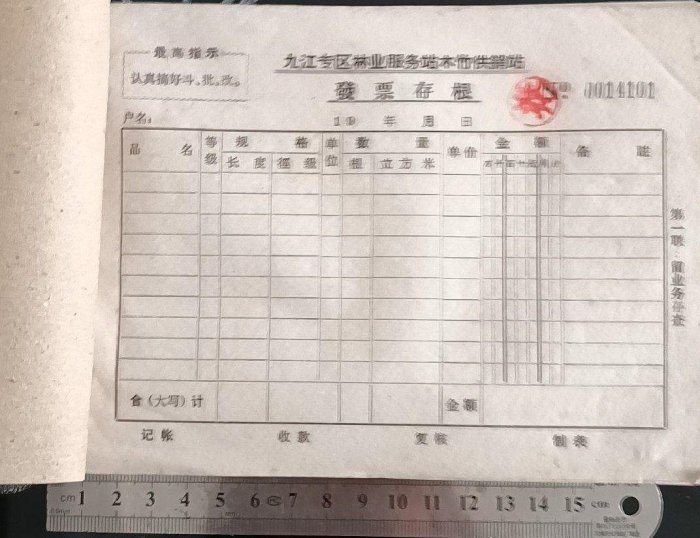 最高指示
认真搞好斗、批、改。
九江专区林业服务站木竹供销站
發票存根
№ 0014101
户名:
19 年 月 日
品名 等级 规格 单位 数量 单价 金额 备註
长度 径级 根 立方米
第一联:留业务存查
合(大写)计 金额
记帐 收款 复核 制表
cm 1 2 3 4 5 6 7 8 9 10 11 12 13 14 15